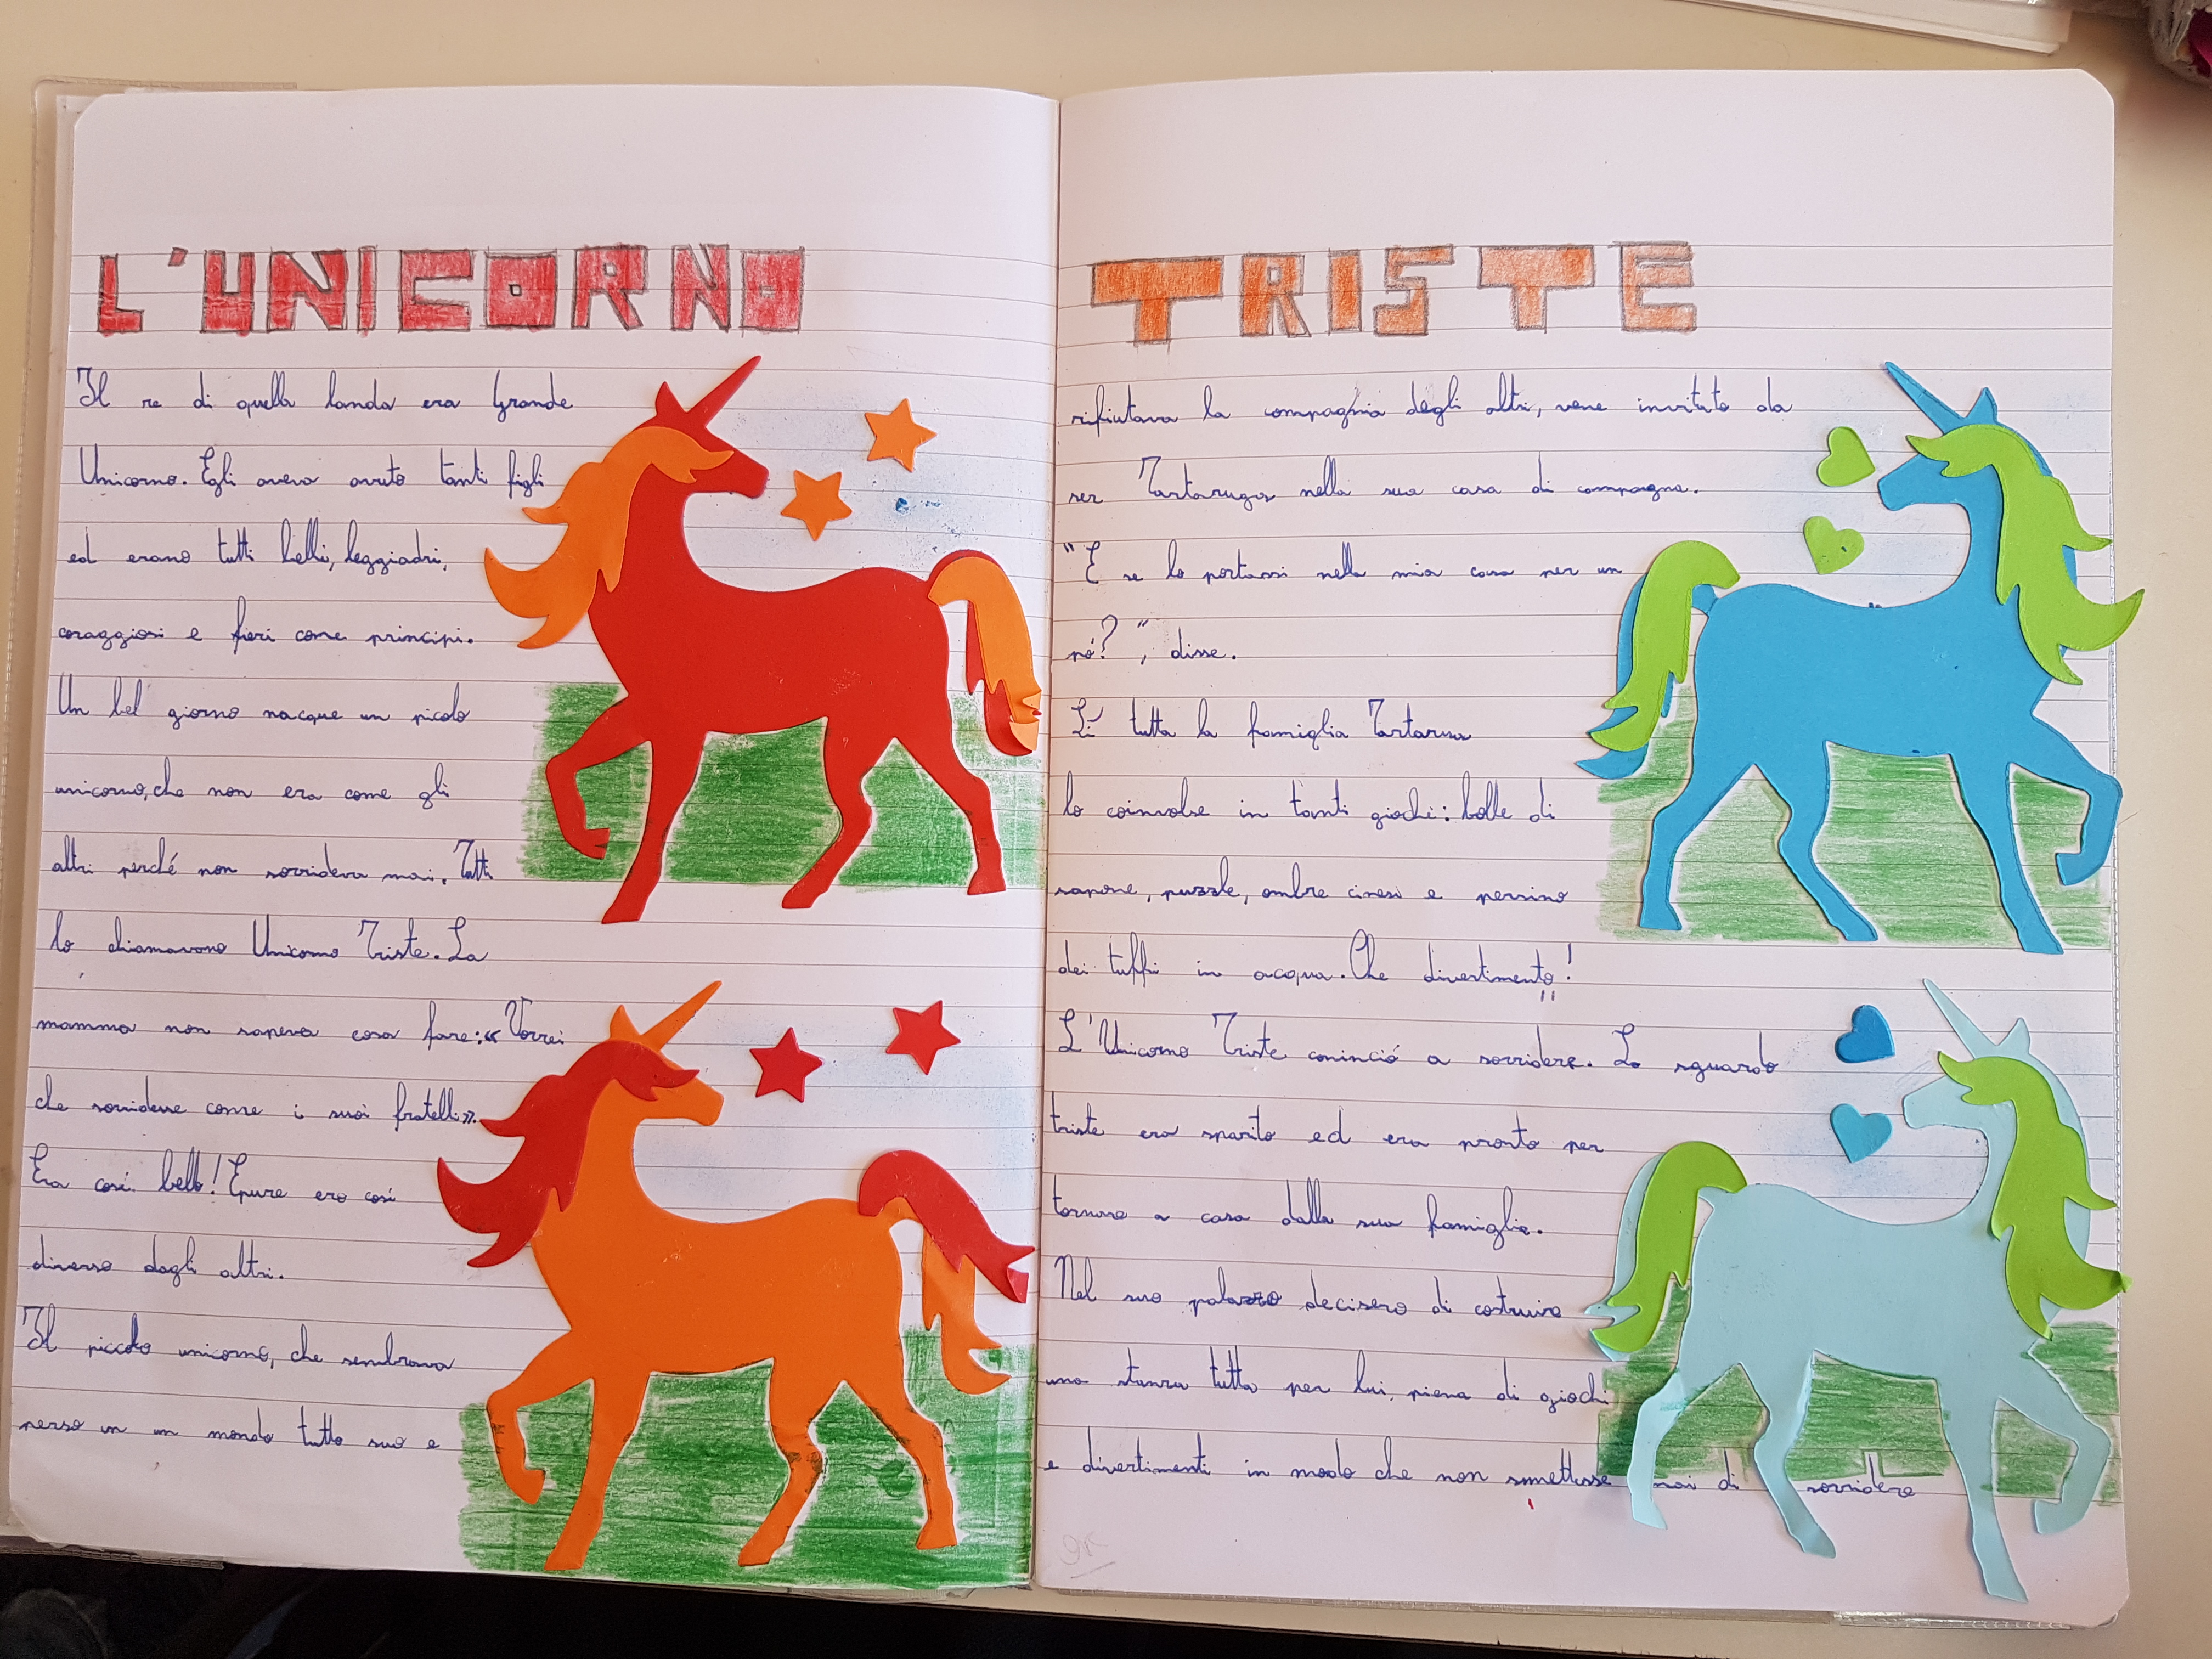 L'UNICORNO
Il re di quella landa era Grande
Unicorno. Egli aveva avuto tanti figli
ed erano tutti belli, leggiadri,
coraggiosi e fieri come principi.
Un bel giorno nacque un picolo
unicorno, che non era come gli
altri perché non sorrideva mai. Tutti
lo chiamavono Unicorno Triste. La
mamma non sapeva cosa fare: «Vorrei
che sorridesse come i suoi fratelli».
Era così bello! Epure era così
diverso dagli altri.
Il piccolo unicorno, che sembrava
perso in un mondo tutto suo e
TRISTE
rifiutava la compagnia degli altri, vene invitato da
ser Tartaruga nella sua casa di campagna.
"E se lo portassi nella mia casa per un
pò?", disse.
Lì tutta la famiglia
lo coinvolse in tanti giochi: bolle di
sapone, puzzle, ombre cinesi e persino
dei tuffi in acqua. Che divertimento!
L'Unicorno Triste cominciò a sorridere. Lo sguardo
triste era sparito ed era pronto per
tornare a casa dalla sua famiglia.
Nel suo palazzo decisero di costruire
una stanza tutta per lui, piena di giochi
e divertimenti in modo che non smettesse mai di sorridere